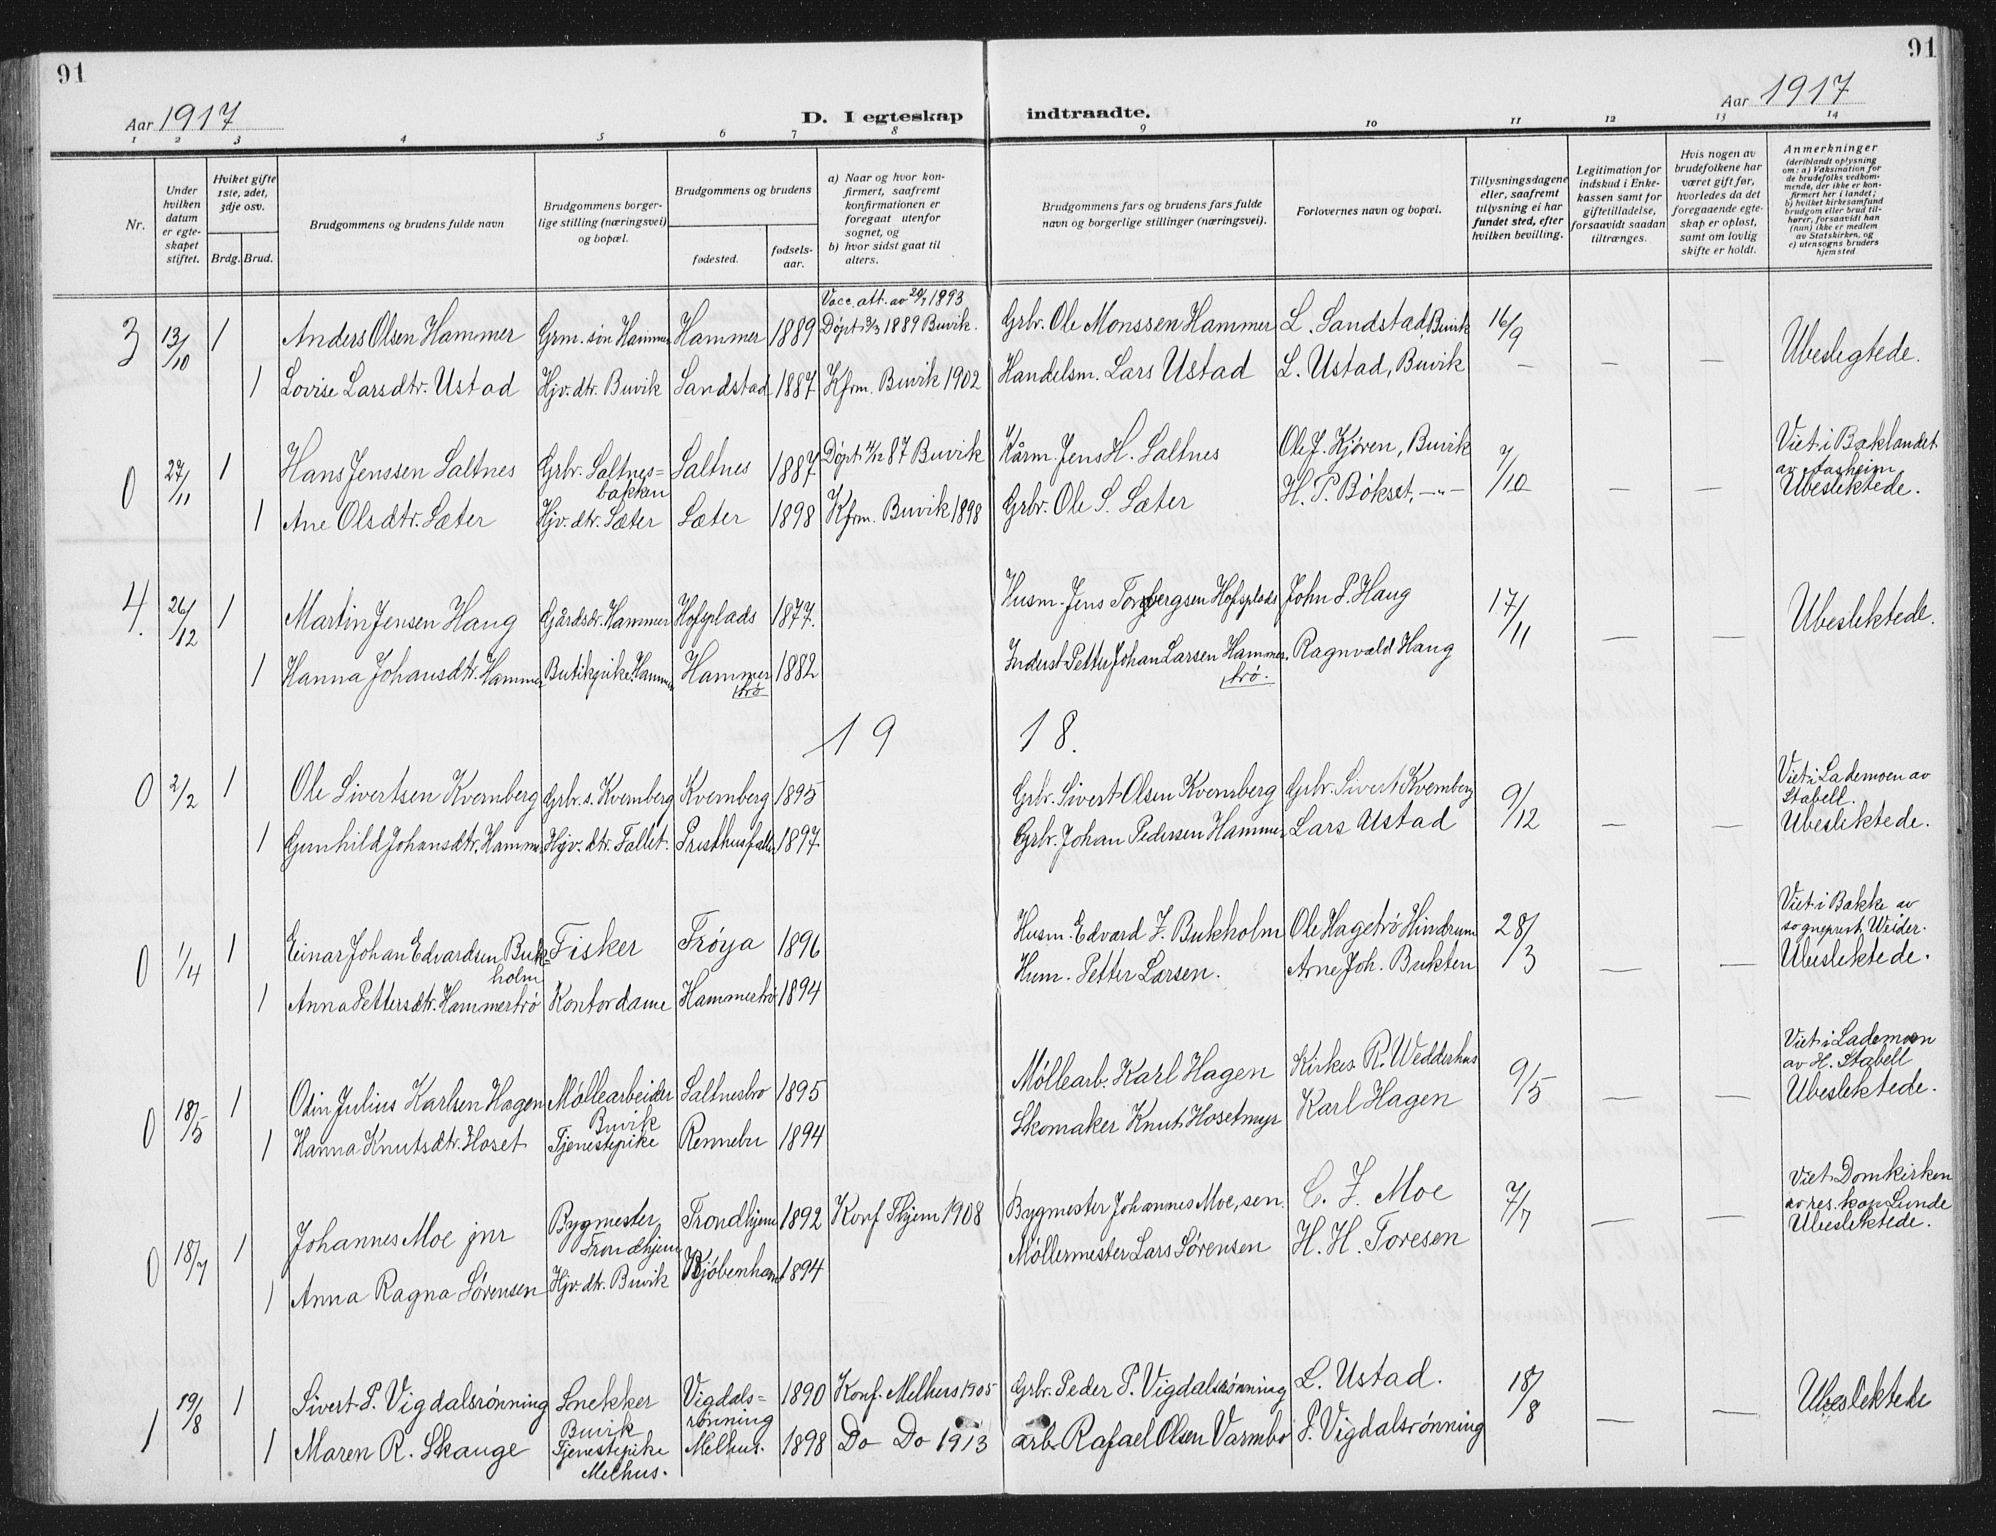 91
91
Aar 1917
D. I egteskap indtraadte.
Aar 1917
1 2 3 4 5 6 7 8 9 10 11 12 13 14
Nr.
Under hvilken datum er egteskapet stiftet.
Hviket gifte 1ste, 2det, 3dje osv.
Brdg. Brud.
Brudgommens og brudens fulde navn
Brudgommens borgerlige stilling (næringsvei) og bopæl.
Brudgommens og brudens
fødested.
fødselsaar.
a) Naar og hvor konfirmert, saafremt konfirmationen er foregaat utenfor sognet, og
b) hvor sidst gaat til alters.
Brudgommens fars og brudens fars fulde navn og borgerlige stillinger (næringsvei).
Forlovernes navn og bopæl.
Tillysningsdagene eller, saafremt tillysning ei har fundet sted, efter hvilken bevilling.
Legitimation for indskud i Enkekassen samt for giftetilladelse, forsaavidt saadan tiltrænges.
Hvis nogen av brudefolkene har været gift før, hvorledes da det foregaaende egteskap er opløst, samt om lovlig skifte er holdt.
Anmerkninger (deriblandt oplysning om: a) Vaksination for de brudefolks vedkommende, der ikke er konfirmert her i landet; b) hvilket kirkesamfund brudgom eller brud tilhører, forsaavidt han (hun) ikke er medlem av Statskirken, og c) utensogns bruders hjemsted
Vacc. att. av 20/7 1893
3 13/10 1 Anders Olsen Hammer Grm. søn Hammer Hammer 1889 Døpt 3/3 1889 Buvik. Grbr. Ole Monssen Hammer L. Sandstad, Buvik 16/9 — — Ubesligtede.
1 Lovise Larsdtr. Ustad Hjv. dtr. Buvik Sandstad 1887 Kfrm. Buvik 1902 Handelsm. Lars Ustad L. Ustad, Buvik —
0 27/11 1 Hans Jenssen Saltnes Grbr. Saltnes=bakken Saltnes 1887 Døpt 4/12 87 Buvik Kårm. Jens H. Saltnes Ole J. Kjøren, Buvik 7/10 — — Viet i Baklandet av Aasheim Ubeslektede.
1 Ane Olsdtr. Sæter Hjv. dtr. Sæter Sæter 1898 Kfrm. Buvik 1898 Grbr. Ole S. Sæter H. P. Bökset, —"—
4. 26/12 1 Martin Jensen Haug Gårdsdr. Hammer Hofsplads 1877. Husm. Jens Torbergsen Hofsplads John P. Haug 17/11 — — Ubeslektede.
1 Hanna Johansdtr. Hammer Butikpike. Hammer Hammertrö 1882 Inderst Petter Johan Larsen Hammertrö. Ragnvald Haug
19 18.
0 2/2 1 Ole Sivertsen Kvernberg Grbr. s. Kvernberg Kvernberg 1895 Grbr. Sivert Olsen Kvernberg Grbr. Sivert Kvernberg 9/12 — — Viet i Lademoen av Stabell. Ubeslektede.
1 Gunhild Johansdtr. Hammer Hjv. dtr. Fallit. 1897 Grbr. Johan Pedersen Hammer Lars Ustad
0 1/4 1 Einar Johan Edvardsen Bukholm Fisker Frøya 1896 Husm. Edvard J. Bukholm Ole Hagetrö Hindrum 28/3 — — Viet i Bakke av sogneprest Weider. Ubeslektede.
1 Anna Pettersdtr. Hammertrö Kontordame Hammertrö 1894 Hum. Petter Larsen. Arne Joh. Bukten
0 18/5 1 Odin Julius Karlsen Hagen Møllearbeider Buvik Saltnesbro 1895 Møllearb. Karl Hagen Kirkes. R. Wedderhus 9/5 — — Viet i Lademoen av H. Stabell Ubeslektede.
1 Hanna Knutsdtr. Hoset Tjenestepike Rennebu 1894 Skomaker Knut Hosetmyr Karl Hagen
0 18/7 1 Johannes Moe jnr Bygmester Trondhjem Trondhjem 1892 Konf Thjem 1908 Bygmester Johannes Moe, sen. C. J. Moe 7/7 — — Viet i Domkirken av res. kap Lunde Ubeslektede.
1 Anna Ragna Sørensen Hjv. dtr. Buvik Kjøbenhavn 1894 Møllermester Lars Sørensen H. H. Toresen
1 19/8 1 Sivert P. Vigdalsrønning Snekker Buvik Vigdals=rønning 1890 Konf. Melhus 1905 Grbr. Peder P. Vigdalsrønning L. Ustad. 18/8 — — Ubeslektede
1 Maren R. Skauge Tjenestepike Melhus. Melhus. 1898 Do Do 1913 arb. Rafael Olsen Varmbo P. Vigdalsrønning